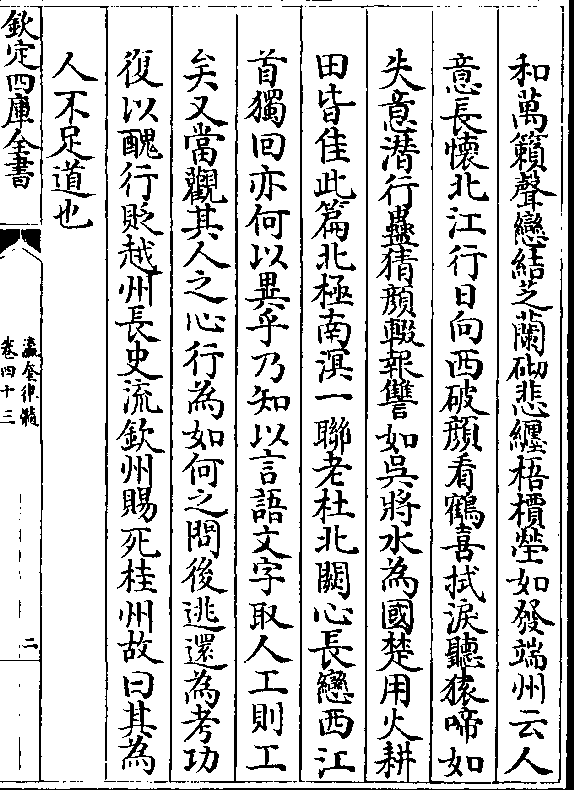 和萬籟聲戀結芝蘭砌悲纏梧檟塋如發端州云人
意長懷北江行日向西破顔看鶴喜拭淚聽猿啼如
失意潜行蠱猜顔輟報讐如吳將水為國楚用火耕
田皆佳此篇北極南溟一聯老杜北闕心長戀西江
首獨回亦何以異乎乃知以言語文字取人工則工
矣又當觀其人之心行為如何之問後逃還為考功
復以醜行貶越州長史流欽州賜死桂州故曰其為
人不足道也
欽定四庫全書
瀛奎律髓
卷四十三
二